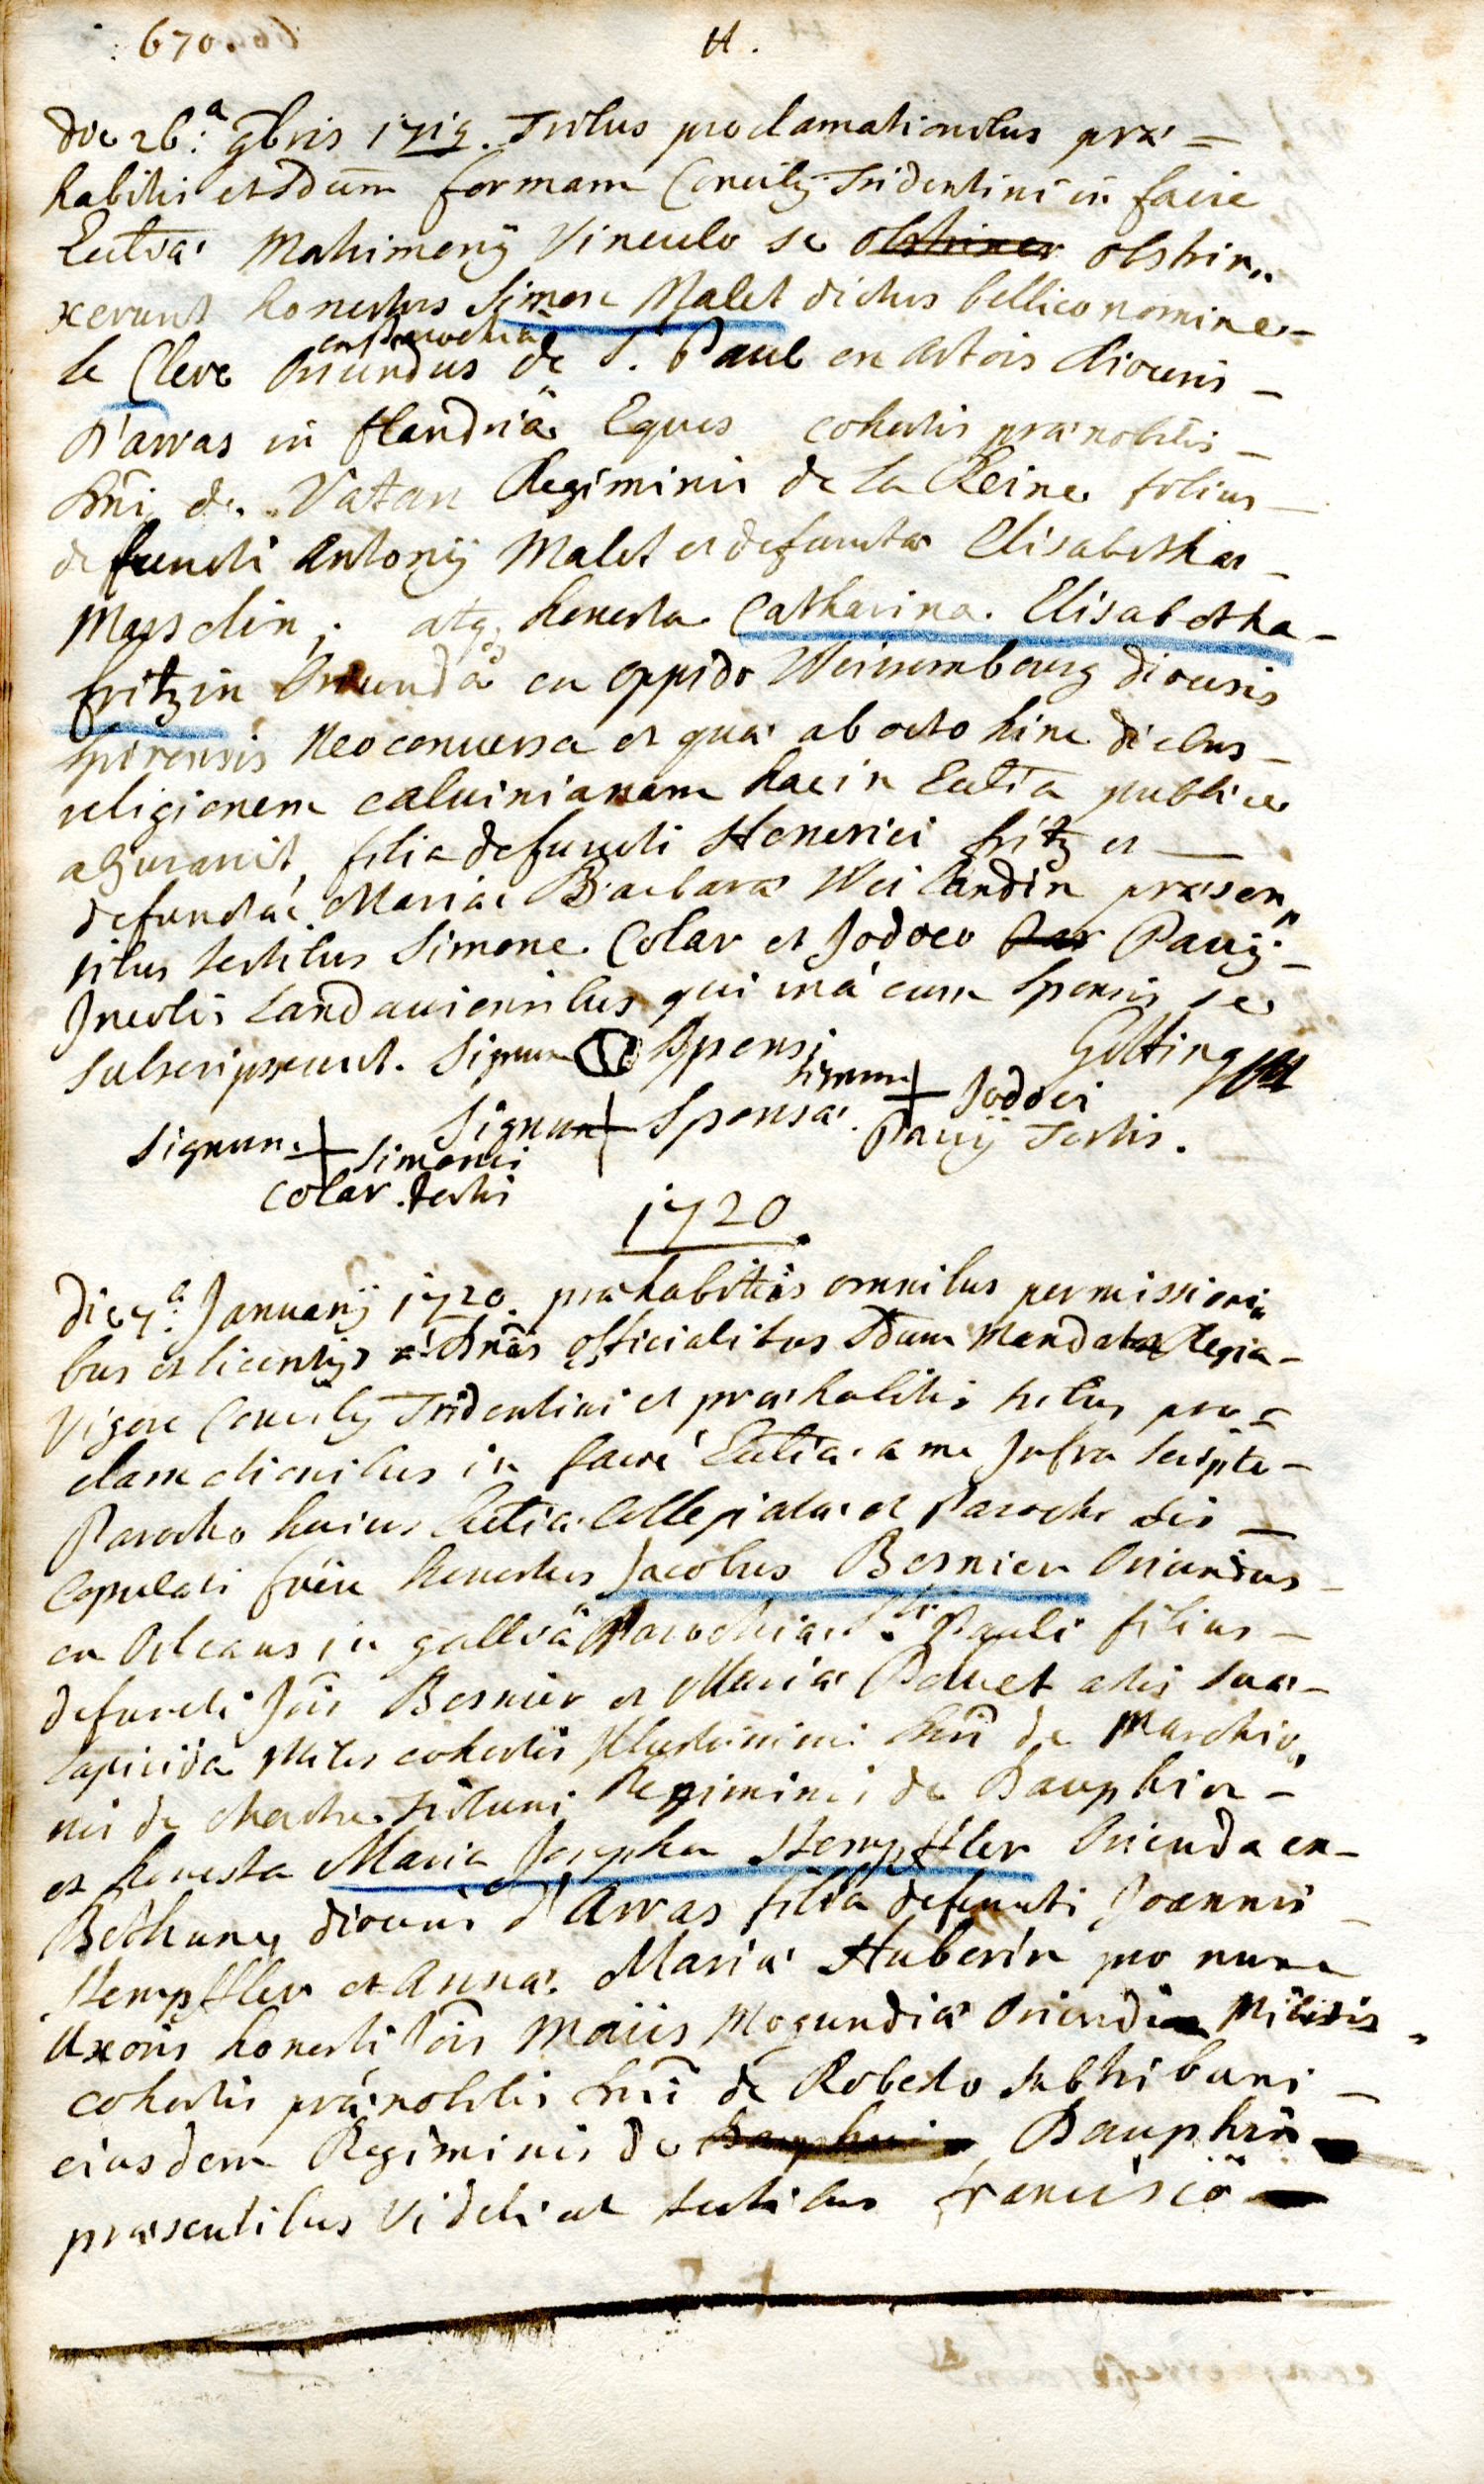 670. H.
Die 26.ᵃ 9bris 1719. Tribus proclamationibus præ=
habitis et Sdum formam Concilij Tridentini in facie
Ecclæ Matrimonij Vinculo se obstrinxer obstrin„
xerunt honestus Simon Malet dictus bellico nomine
le Clere Oriundus ex Parochia de S. Paul en Artois diocesis
D'arras in flandriâ Eques cohortis prænobilis
Dni de Vatan Regiminis de la Reine filius
defuncti Antonij Malet et defunctæ Elisabethæ
Massclin; atq; honesta Catharina Elisabetha
fritzin Oriunda ex oppido Weissembourg diocesis
spirensis Neoconversa et quæ ab octo hinc diebus
religionem calvinianam hac in Ecclia publice
abjuravit, filia defuncti Henerici fritz et
defunctæ Mariæ Barbaræ Weilandin præsen„
tibus testibus Simone Colar et Jodoco Par Pavij
Incolis Landaviensibus qui unà cum Sponsis se
subscripserunt. Signum Sponsi Götting
Signum + Jodoci
Signum + Sponsæ. Pavij Testis.
Signum + Simonis
Colar testis
1720.
Die 7.ᵃ Januarij 1720. præhabitis omnibus permissioni
bus et licentijs à Dnis officialibus Sdum Mandata Regia
Vigore Concilij Tridentini et præhabitis tribus pro=
clamationibus in facie Ecclia a me Infra Scripto
Parocho huius Eccliæ Collegiatæ et Parochi
Copulati fuere honestus Jacobus Besnier Oriundus
ex Orleans in galliâ Parochiæ Sti Pauli filius
defuncti Jois Besnier et Mariæ Peluet artis suæ
Lapicida Miles cohortis Illustrissimi Dni de Marchio„
nis de tribuni Regiminis de Dauphin
et honesta Maria Josepha Hempffler Oriunda ex
Bethune diocesis d'Arras filia defuncti Joannis
Hempffler et Annæ Mariæ Huberin pro nunc
Uxoris honesti Jois Moiis Mogundiæ Oriundi Militis
cohortis prænobilis Dni de Roberto subtribuni
eiusdem Regiminis de Dauphin Dauphin
præsentibus Videlicet testibus francisco